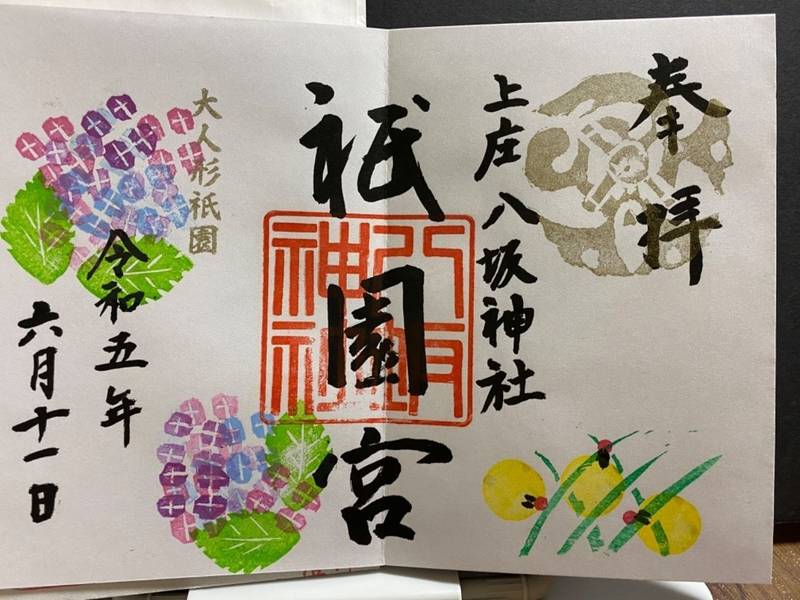 奉拝
上庄八坂神社
祇園宮
八坂神社
大人形祇園
令和五年
六月十一日